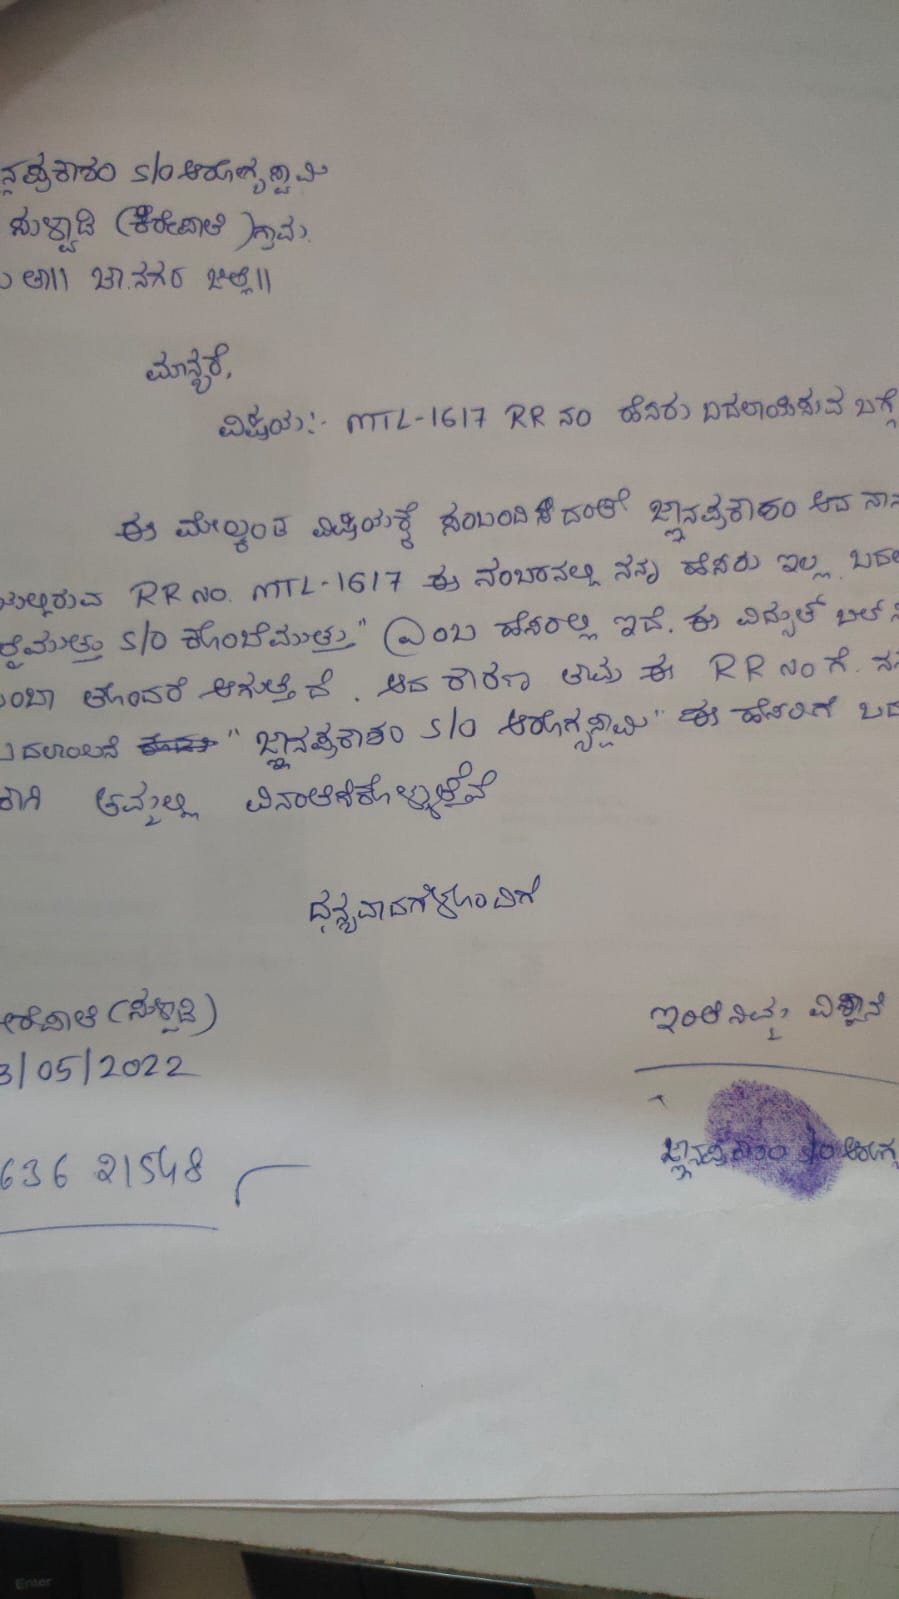 ನಪ್ರಕಾಶಂ S/O ಆರೋಗ್ಯಸ್ವಾಮಿ
ಸುಳ್ವಾಡಿ (ಕೆರೇಪಾಳಿ) ಗ್ರಾಮ.
ತಾ|| ಚಾ.ನಗರ ಜಿಲ್ಲೆ||
ಮಾನ್ಯರೆ,
ವಿಷಯ:- MTL-1617 RR ನಂ ಹೆಸರು ಬದಲಾಯಿಸುವ ಬಗ್ಗೆ
ಈ ಮೇಲ್ಕಂಡ ವಿಷಿಯಕ್ಕೆ ಸಂಬಂದಿಸಿದಂತೆ ಜ್ಞಾನಪ್ರಕಾಶಂ ಆದ ನಾನ
ಯಲ್ಲಿರುವ RR No. MTL-1617 ಈ ನಂಬರನಲ್ಲಿ ನನ್ನ ಹೆಸರು ಇಲ್ಲ. ಬದಲ
ಮುತ್ತು S/O ಕೊಂಬೆಮುತ್ತು" ಎಂಬ ಹೆಸರಲ್ಲಿ ಇದೆ. ಈ ವಿದ್ಯುತ್ ಬಿಲ್
ಂಬಾ ತೊಂದರೆ ಆಗುತ್ತಿದೆ. ಆದ ಕಾರಣ ತಾವು ಈ RR ನಂ ಗೆ. ನನ
"ಜ್ಞಾನಪ್ರಕಾಶಂ S/O ಆರೋಗ್ಯಸ್ವಾಮಿ" ಈ ಹೆಸರಿಗೆ ಬದ
ಕಾಗಿ ತಮ್ಮಲ್ಲಿ ವಿನಂತಿಸಿಕೊಳ್ಳುತ್ತೇವೆ
ಧನ್ಯವಾದಗಳೊಂದಿಗೆ
ಕೆರೆಪಾಳಿ (ಸುಳ್ವಾಡಿ)
3/05/2022
ಇಂತಿ ನಿಮ್ಮ ವಿಶ್ವಾಸಿ
636 21548
ಜ್ಞಾನಪ್ರಕಾಶಂ S/O ಆರೋಗ್ಯ
Enter